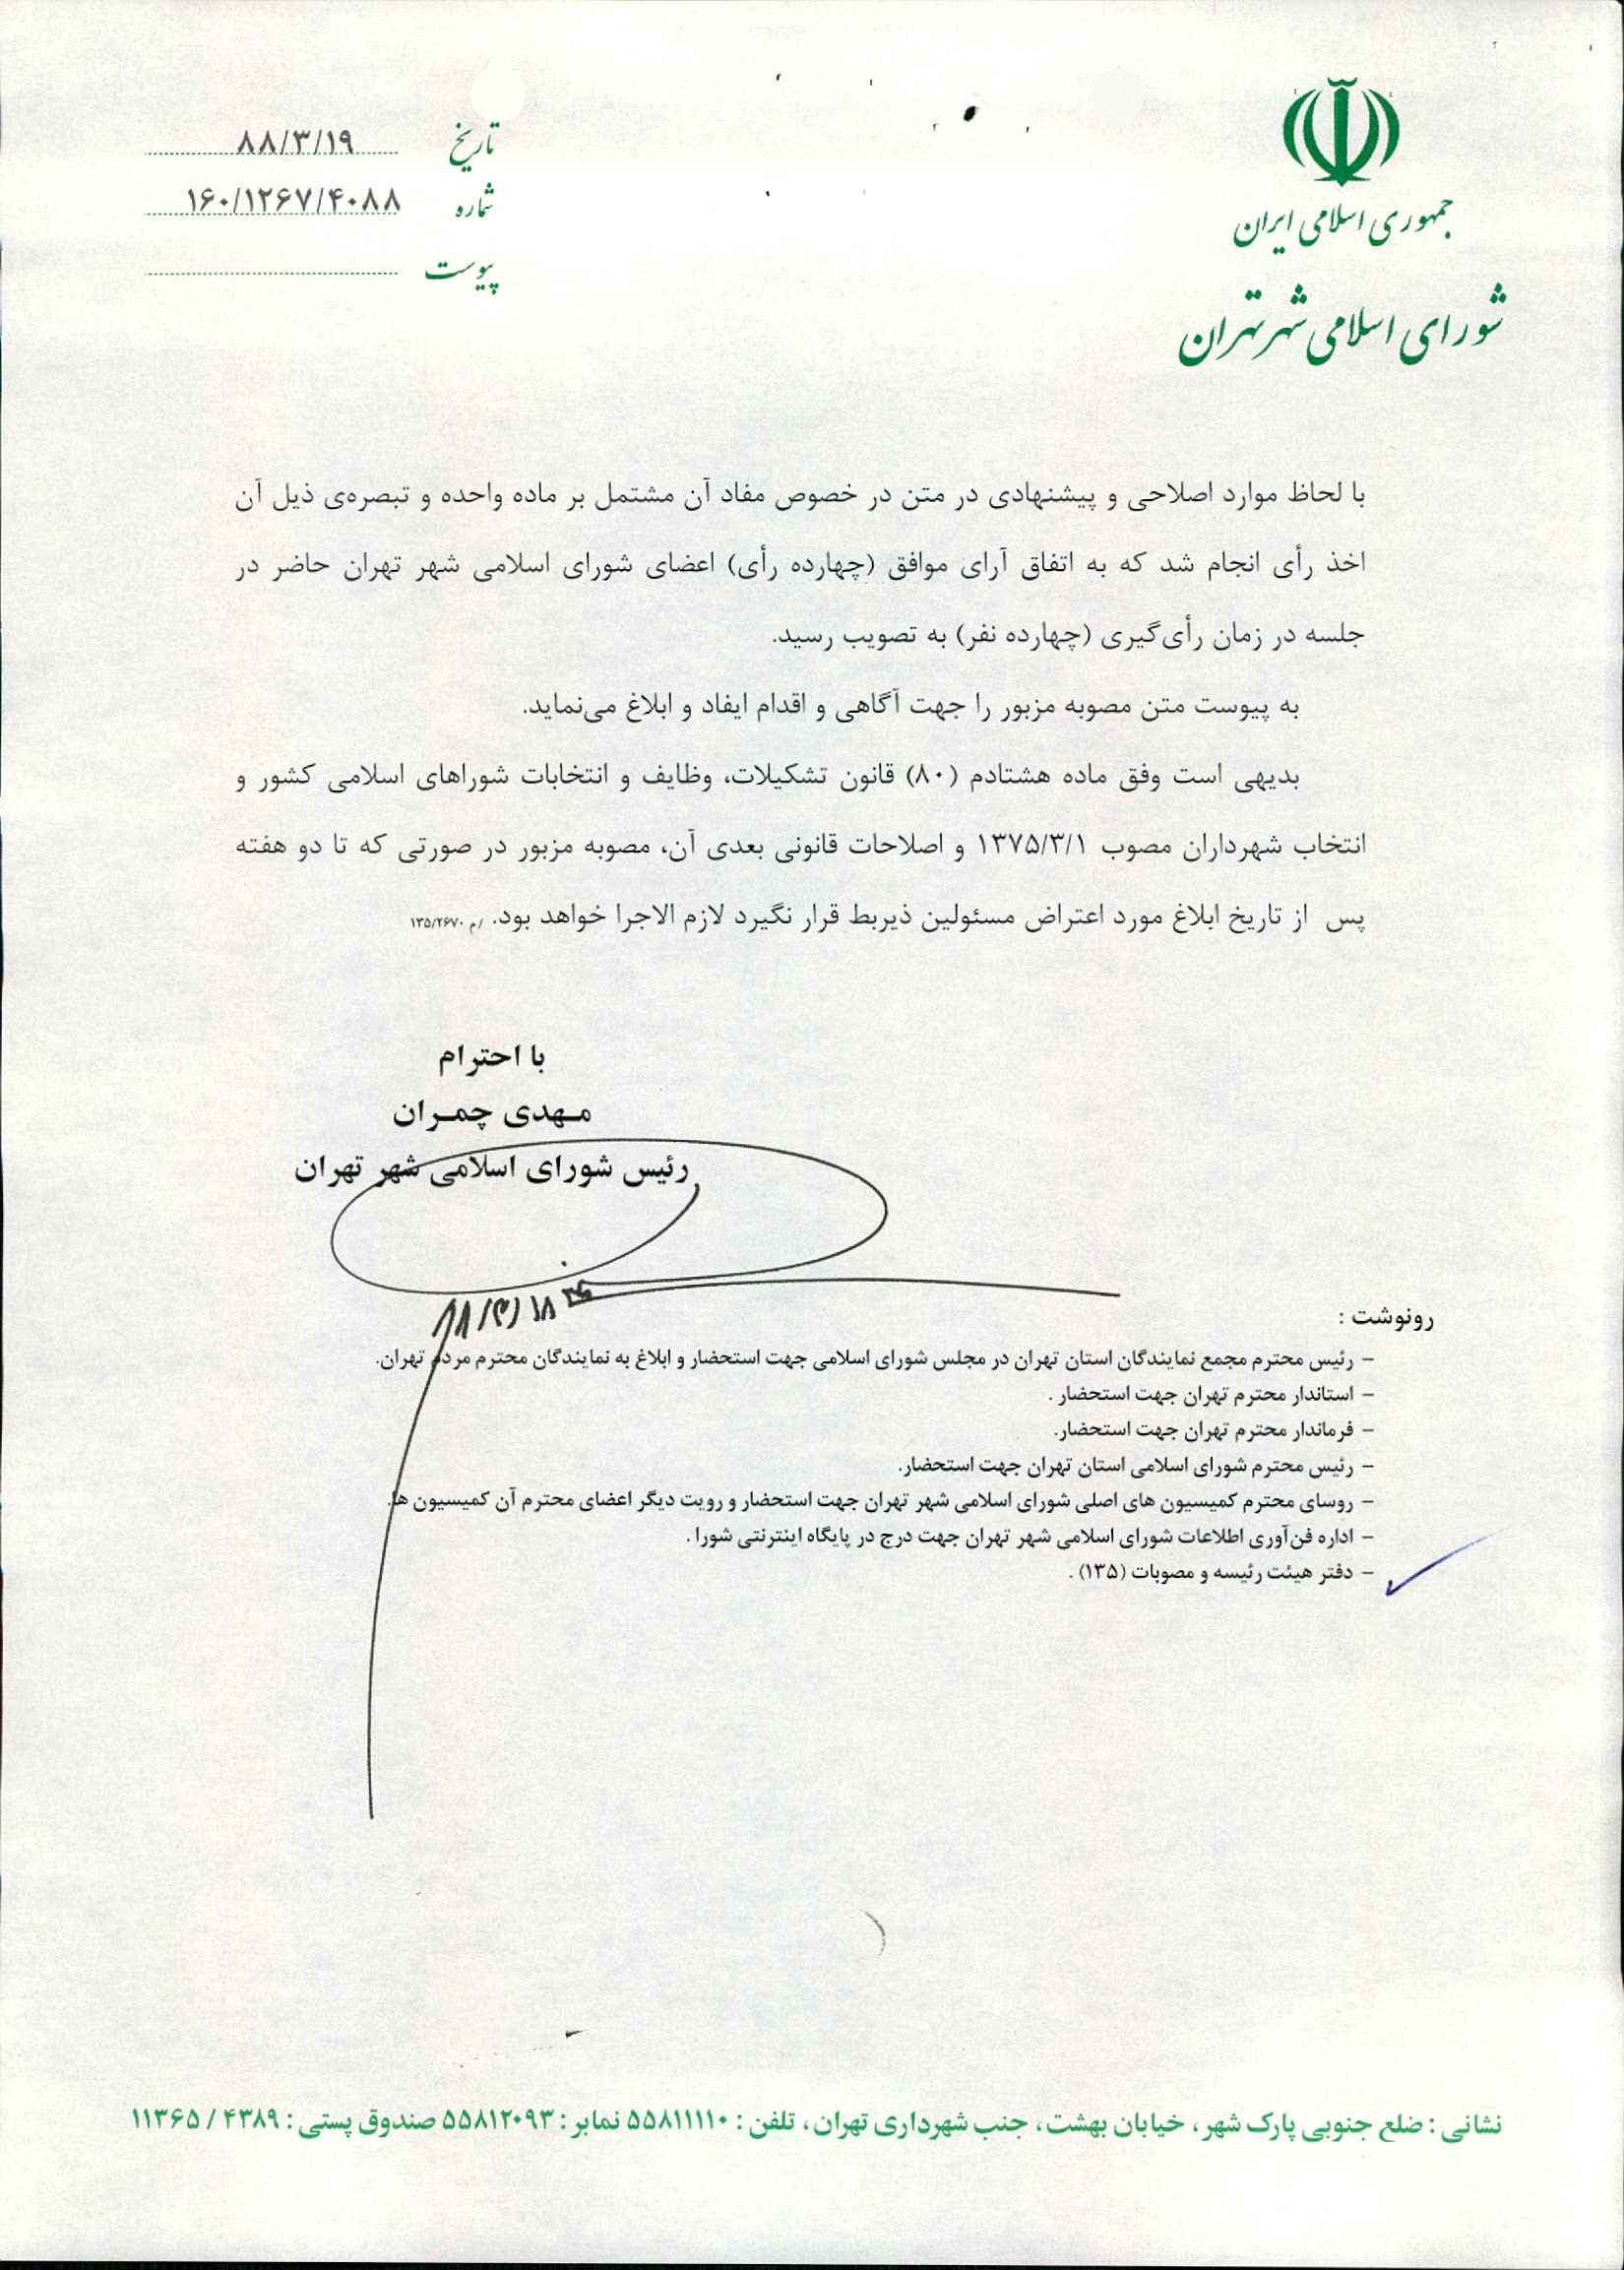 جمهوری اسلامی ایران
شورای اسلامی شهر تهران
تاریخ ۸۸/۳/۱۹
شماره ۱۶۰/۱۲۶۷/۴۰۸۸
پیوست
با لحاظ موارد اصلاحی و پیشنهادی در متن در خصوص مفاد آن مشتمل بر ماده واحده و تبصره‌ی ذیل آن
اخذ رأی انجام شد که به اتفاق آرای موافق (چهارده رأی) اعضای شورای اسلامی شهر تهران حاضر در
جلسه در زمان رأی‌گیری (چهارده نفر) به تصویب رسید.
به پیوست متن مصوبه مزبور را جهت آگاهی و اقدام ایفاد و ابلاغ می‌نماید.
بدیهی است وفق ماده هشتادم (۸۰) قانون تشکیلات، وظایف و انتخابات شوراهای اسلامی کشور و
انتخاب شهرداران مصوب ۱۳۷۵/۳/۱ و اصلاحات قانونی بعدی آن، مصوبه مزبور در صورتی که تا دو هفته
پس از تاریخ ابلاغ مورد اعتراض مسئولین ذیربط قرار نگیرد لازم الاجرا خواهد بود. /م ۱۳۵/۲۶۷۰
با احترام
مـهدی چمـران
رئیس شورای اسلامی شهر تهران
رونوشت :
– رئیس محترم مجمع نمایندگان استان تهران در مجلس شورای اسلامی جهت استحضار و ابلاغ به نمایندگان محترم مردم تهران.
– استاندار محترم تهران جهت استحضار .
– فرماندار محترم تهران جهت استحضار.
– رئیس محترم شورای اسلامی استان تهران جهت استحضار.
– روسای محترم کمیسیون های اصلی شورای اسلامی شهر تهران جهت استحضار و رویت دیگر اعضای محترم آن کمیسیون ها.
– اداره فن‌آوری اطلاعات شورای اسلامی شهر تهران جهت درج در پایگاه اینترنتی شورا .
– دفتر هیئت رئیسه و مصوبات (۱۳۵) .
نشانی : ضلع جنوبی پارک شهر، خیابان بهشت، جنب شهرداری تهران، تلفن : ۵۵۸۱۱۱۱۰ نمابر : ۵۵۸۱۲۰۹۳ صندوق پستی : ۴۳۸۹ / ۱۱۳۶۵